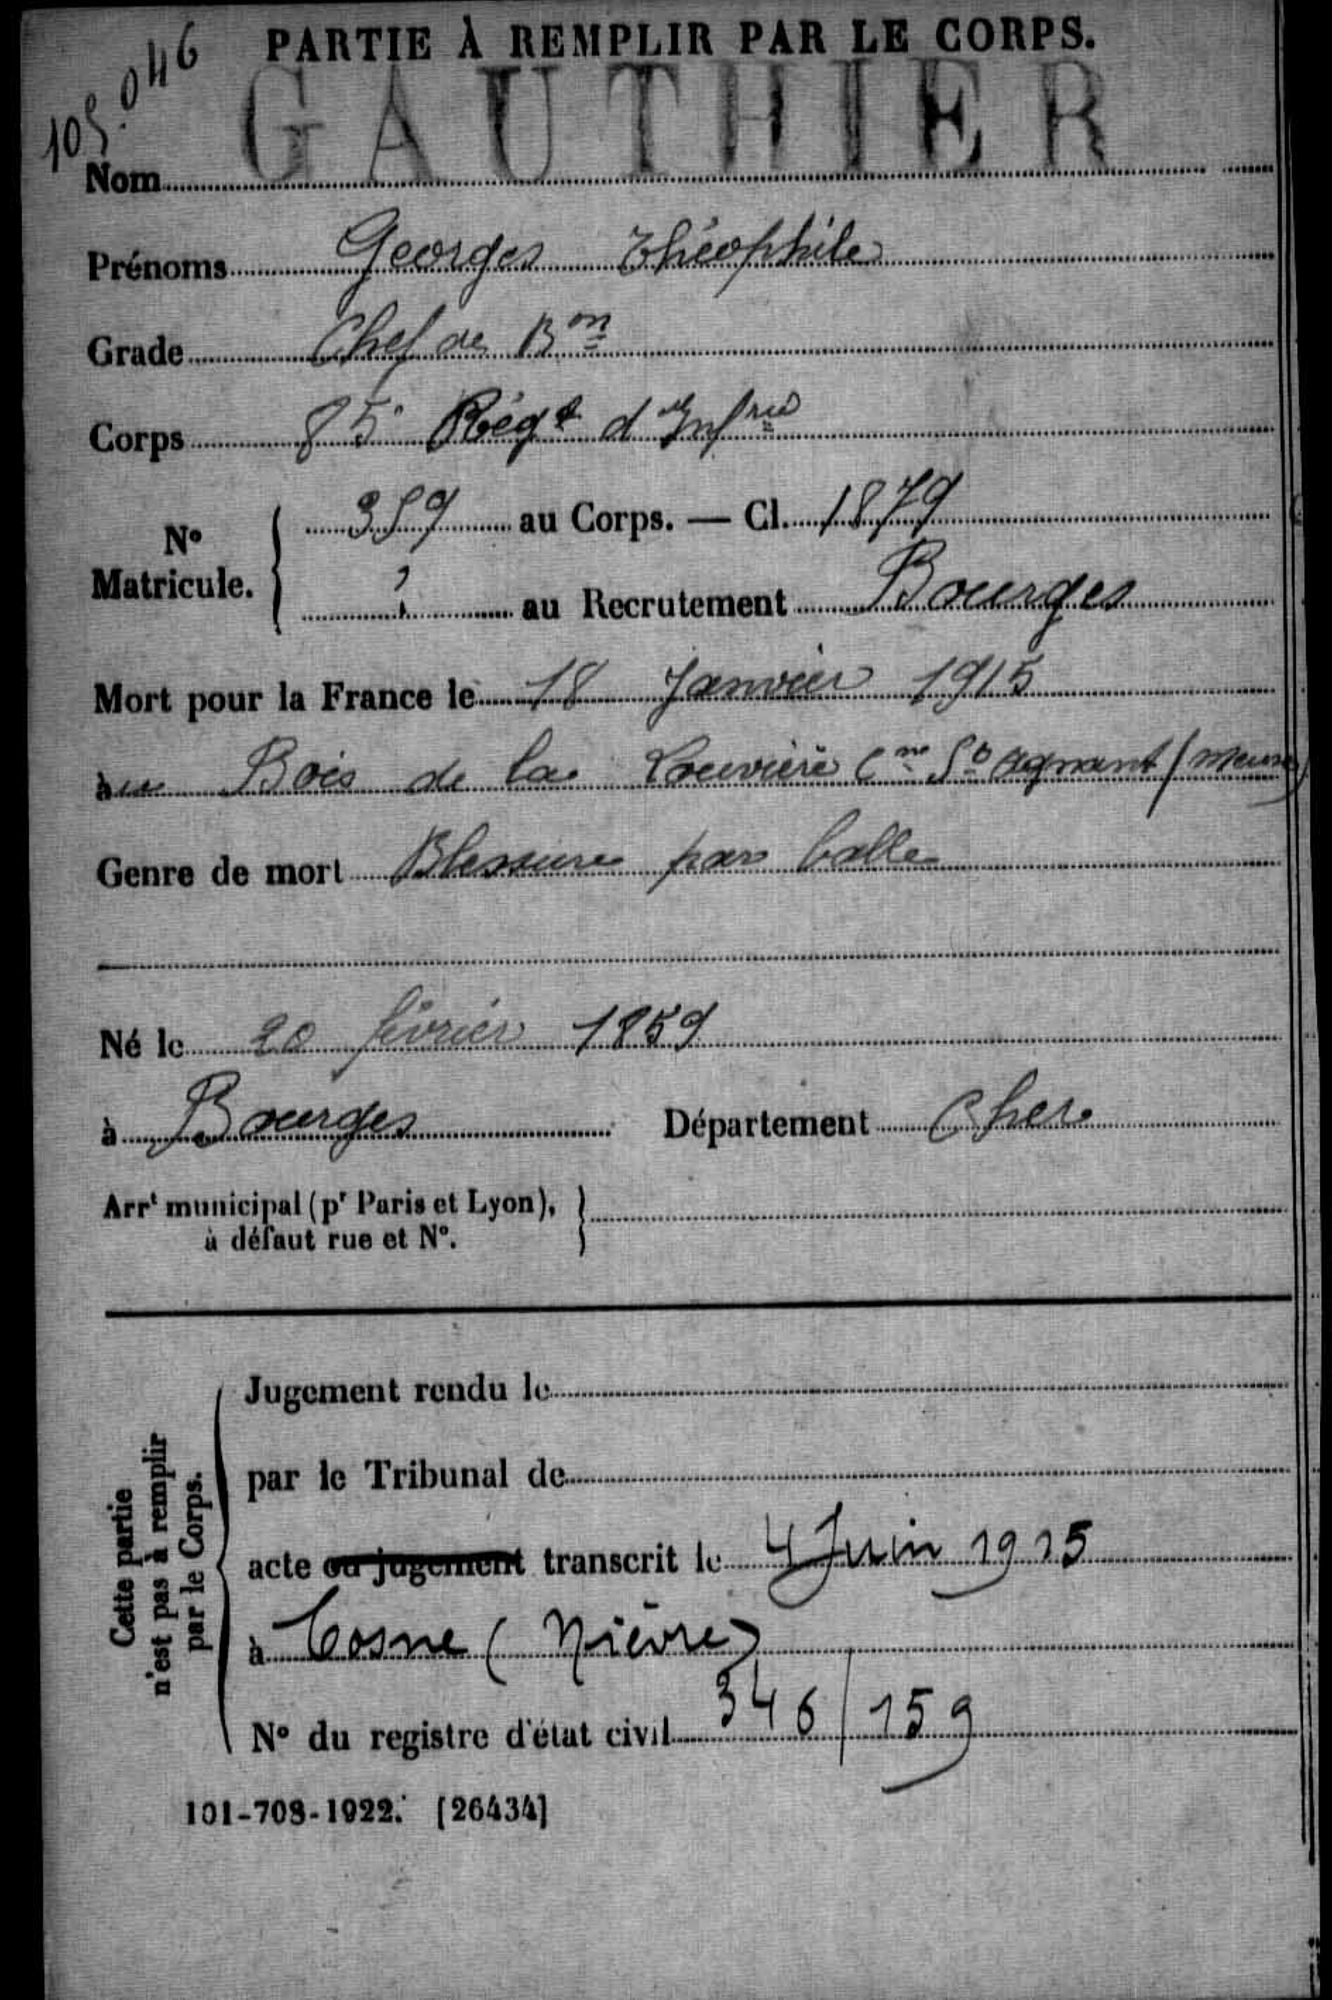 PARTIE À REMPLIR PAR LE CORPS.
105.046
Nom GAUTHIER
Prénoms Georges Théophile
Grade Chef de Bon
Corps 85e Régt d'Infrie
No Matricule. 359 au Corps. — Cl. 1879
? au Recrutement Bourges
Mort pour la France le 18 Janvier 1915
à Bois de la Louvière Cne St Agnant (Meuse)
Genre de mort Blessure par balle
Né le 20 février 1859
à Bourges Département Cher
Arrt municipal (pr Paris et Lyon),
à défaut rue et No.
Cette partie
n'est pas à remplir
par le Corps.
Jugement rendu le
par le Tribunal de
acte ou jugement transcrit le 4 Juin 1915
à Cosne (Nièvre)
No du registre d'état civil 346/159
101-708-1922. [26434]